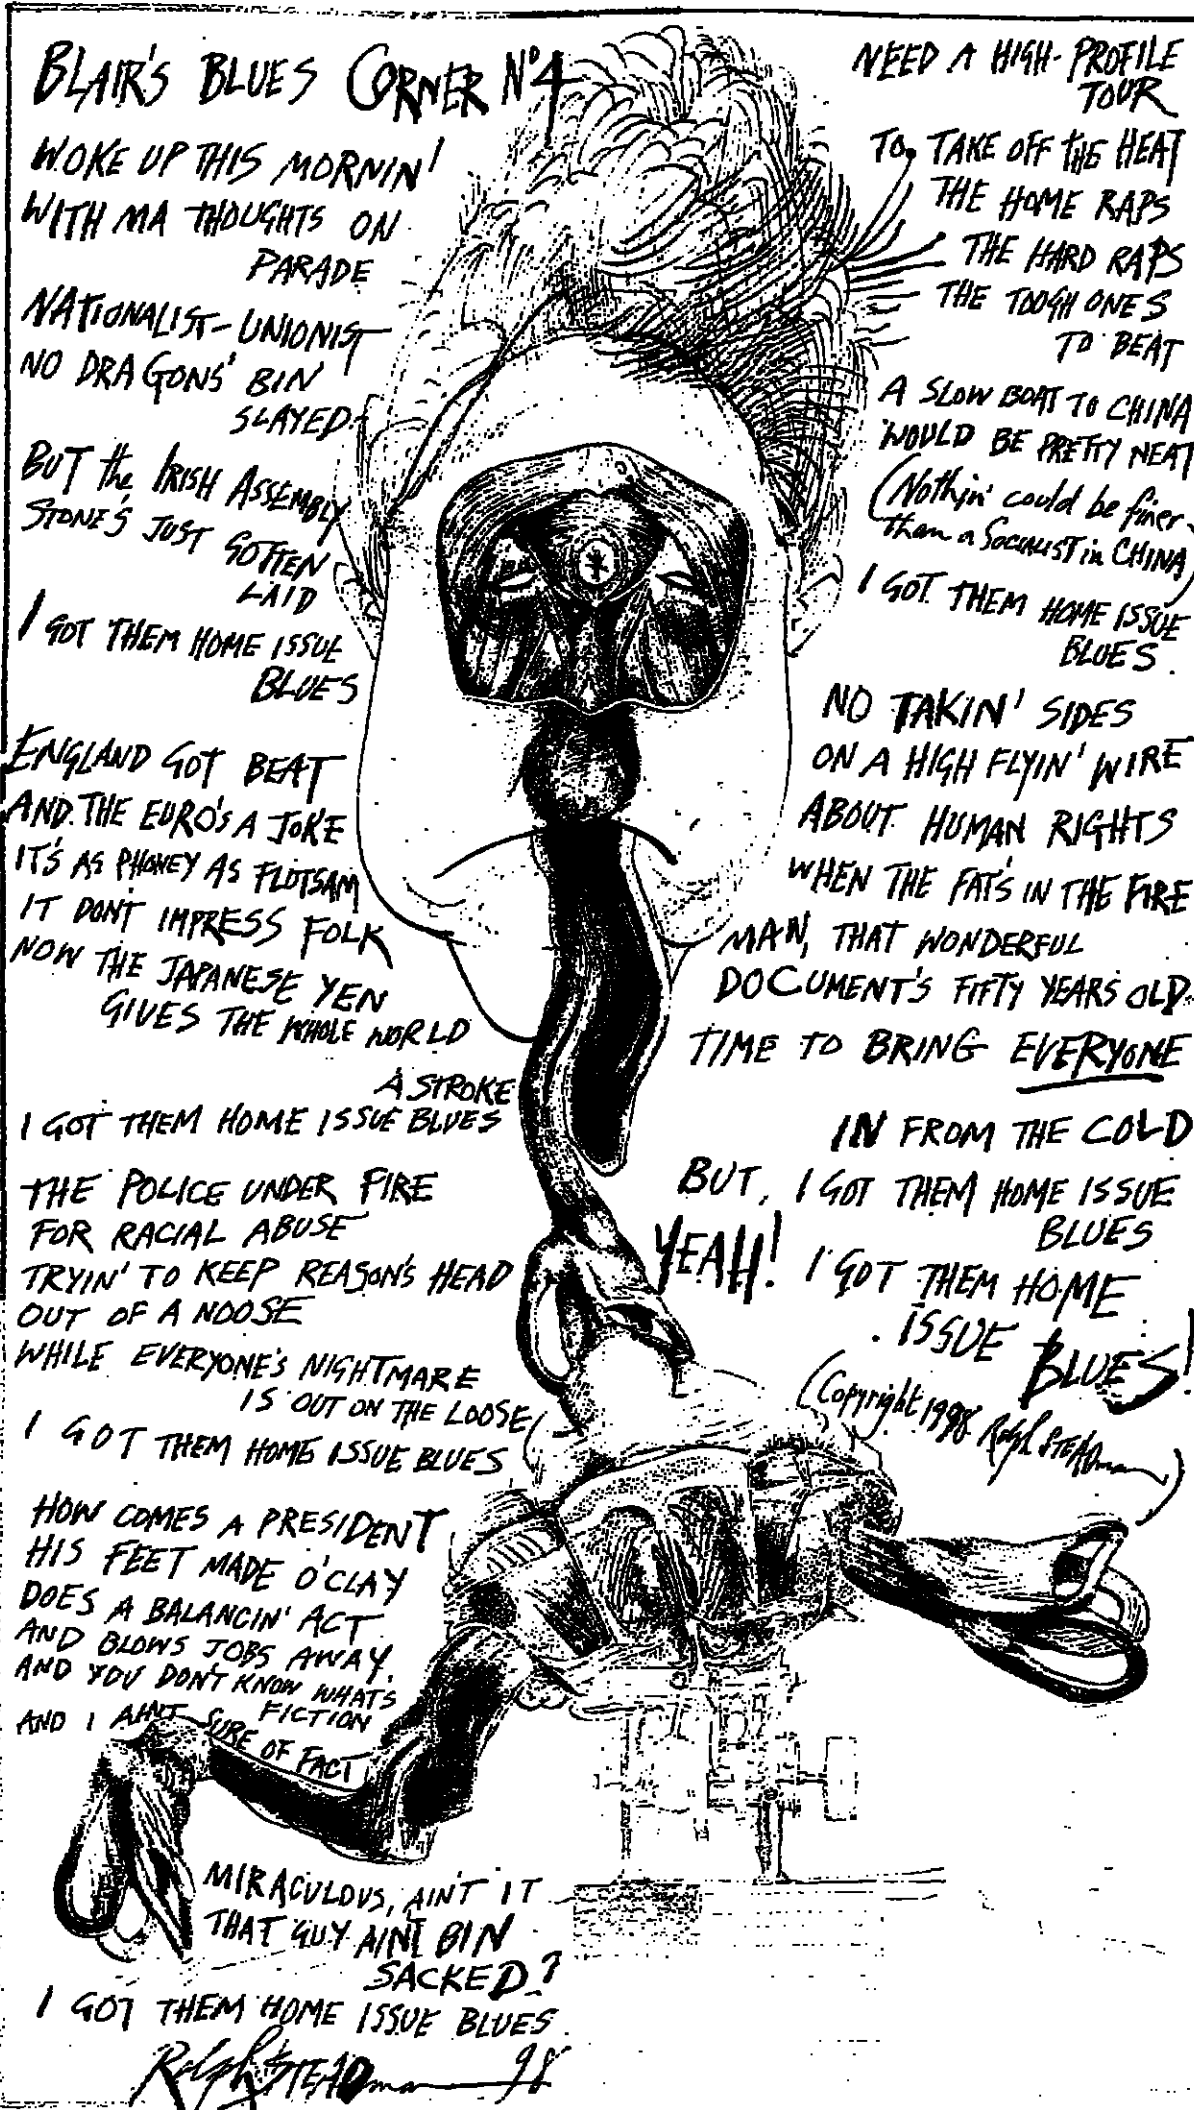 BLAIR'S BLUES CORNER No 4
WOKE UP THIS MORNIN'
WITH MA THOUGHTS ON
PARADE
NATIONALIST-UNIONIST
NO DRAGONS' BIN
SLAYED
BUT the IRISH ASSEMBLY
STONE'S JUST GOTTEN
LAID
I GOT THEM HOME ISSUE
BLUES
ENGLAND GOT BEAT
AND THE EURO'S A JOKE
IT'S AS PHONEY AS FLOTSAM
IT DON'T IMPRESS FOLK
NOW THE JAPANESE YEN
GIVES THE WHOLE WORLD
A STROKE
I GOT THEM HOME ISSUE BLUES
THE POLICE UNDER FIRE
FOR RACIAL ABUSE
TRYIN' TO KEEP REASON'S HEAD
OUT OF A NOOSE
WHILE EVERYONE'S NIGHTMARE
IS OUT ON THE LOOSE
I GOT THEM HOME ISSUE BLUES
HOW COMES A PRESIDENT
HIS FEET MADE O'CLAY
DOES A BALANCIN' ACT
AND BLOWS JOBS AWAY.
AND YOU DON'T KNOW WHATS
FICTION
AND I AIN'T SURE OF FACT
MIRACULOUS, AIN'T IT
THAT GUY AIN'T BIN
SACKED?
I GOT THEM HOME ISSUE BLUES.
Ralph STEADman 98
NEED A HIGH-PROFILE
TOUR
TO TAKE OFF THE HEAT
THE HOME RAPS
THE HARD RAPS
THE TOUGH ONES
TO BEAT
A SLOW BOAT TO CHINA
WOULD BE PRETTY NEAT
(Nothin' could be finer
than a Socialist in CHINA)
I GOT THEM HOME ISSUE
BLUES.
NO TAKIN' SIDES
ON A HIGH FLYIN' WIRE
ABOUT HUMAN RIGHTS
WHEN THE FAT'S IN THE FIRE
MAN, THAT WONDERFUL
DOCUMENT'S FIFTY YEARS OLD
TIME TO BRING EVERYONE
IN FROM THE COLD
BUT, I GOT THEM HOME ISSUE
BLUES
YEAH! I GOT THEM HOME
ISSUE BLUES!
(Copyright 1998 Ralph STEADman)